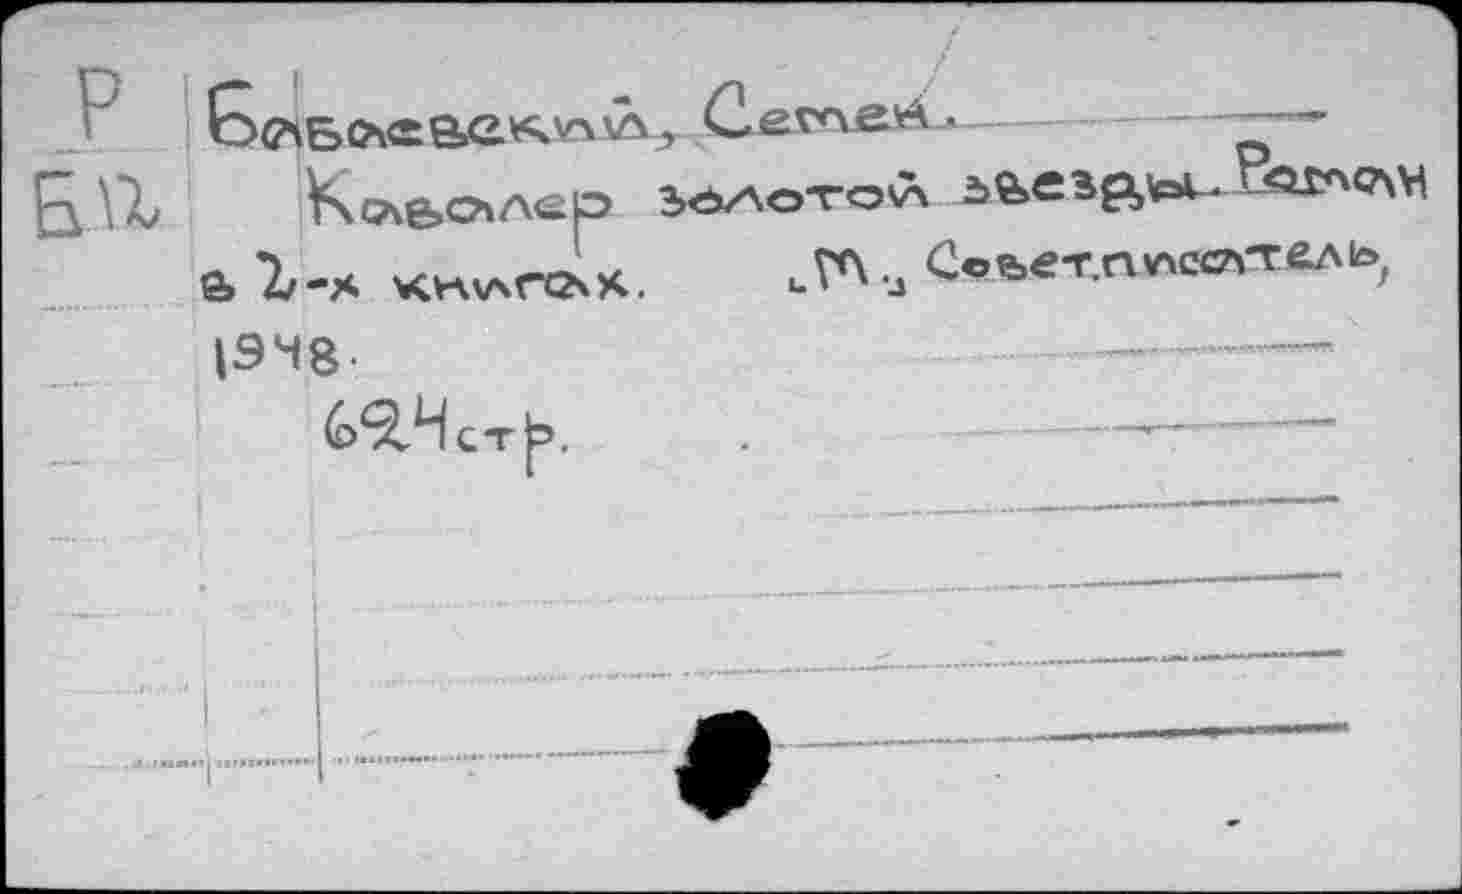 Р Бабаевский, Семен.
Б12 Кавалер золотой звезды. Роман
в 2-х книгах. М., Совет.писатель,
1948.
624стр.